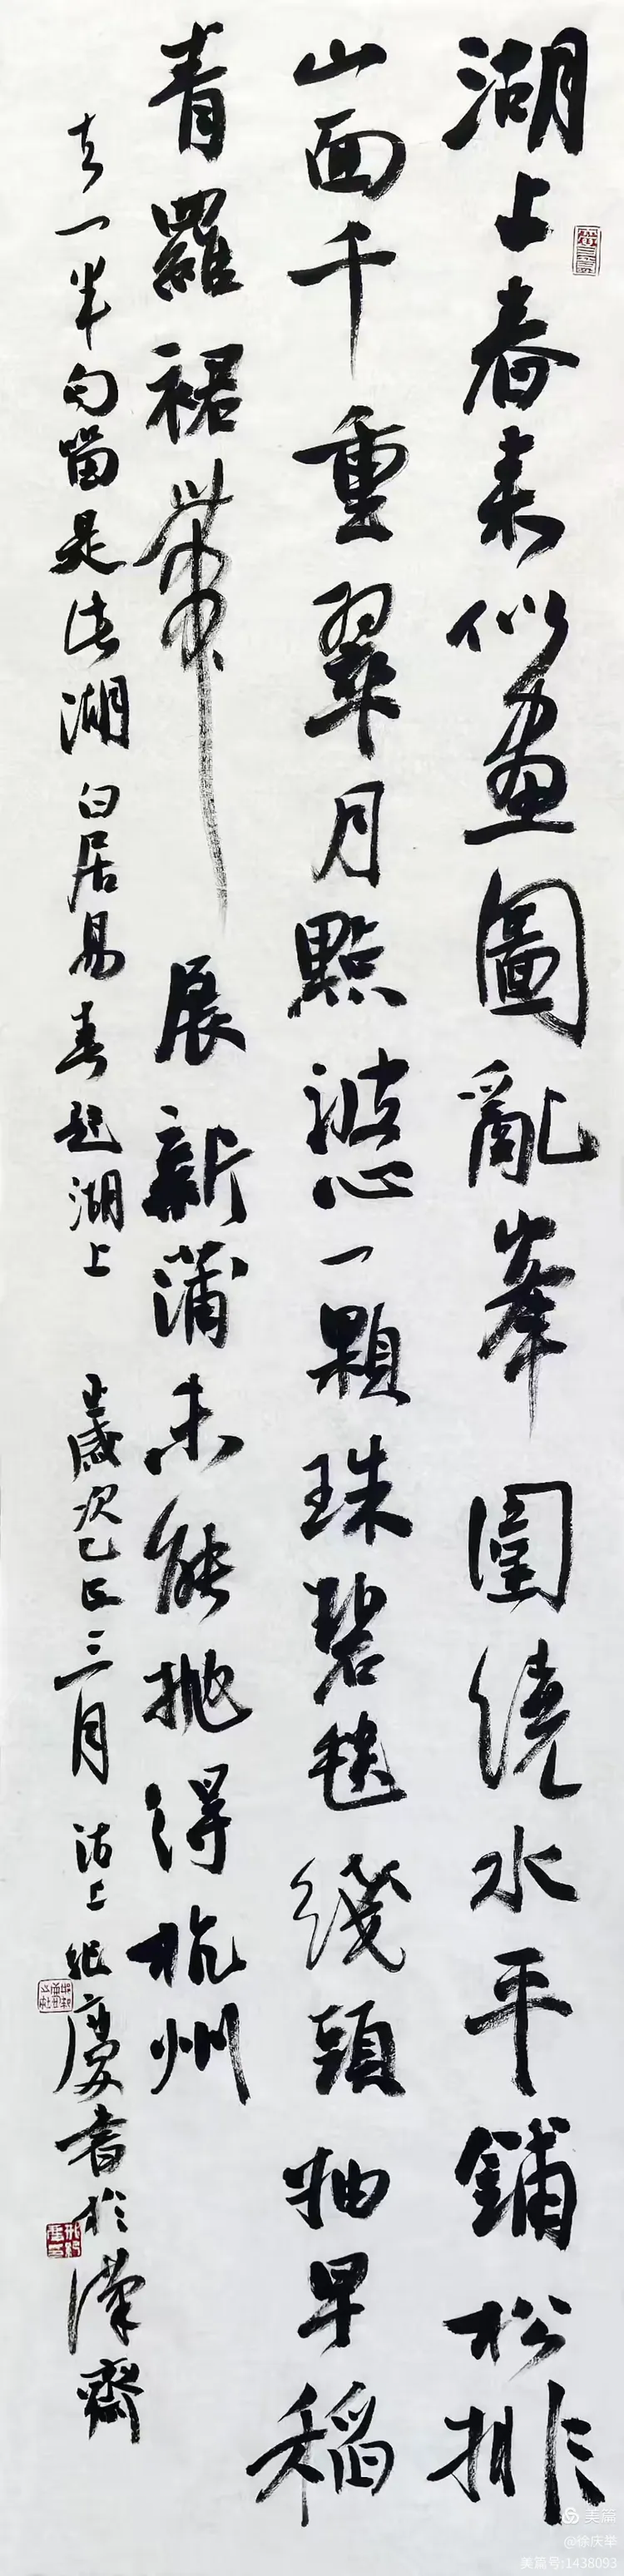 湖上春来似畫圖亂峯圍繞水平鋪松排
山面千重翠月點波心一顆珠碧毯綫頭抽早稻
青羅裙帶展新蒲未能抛得杭州
去一半勾留是此湖 白居易春題湖上 歲次乙巳三月 沽上紀慶書於漢齋
美篇
@徐庆举
美篇号:1438093